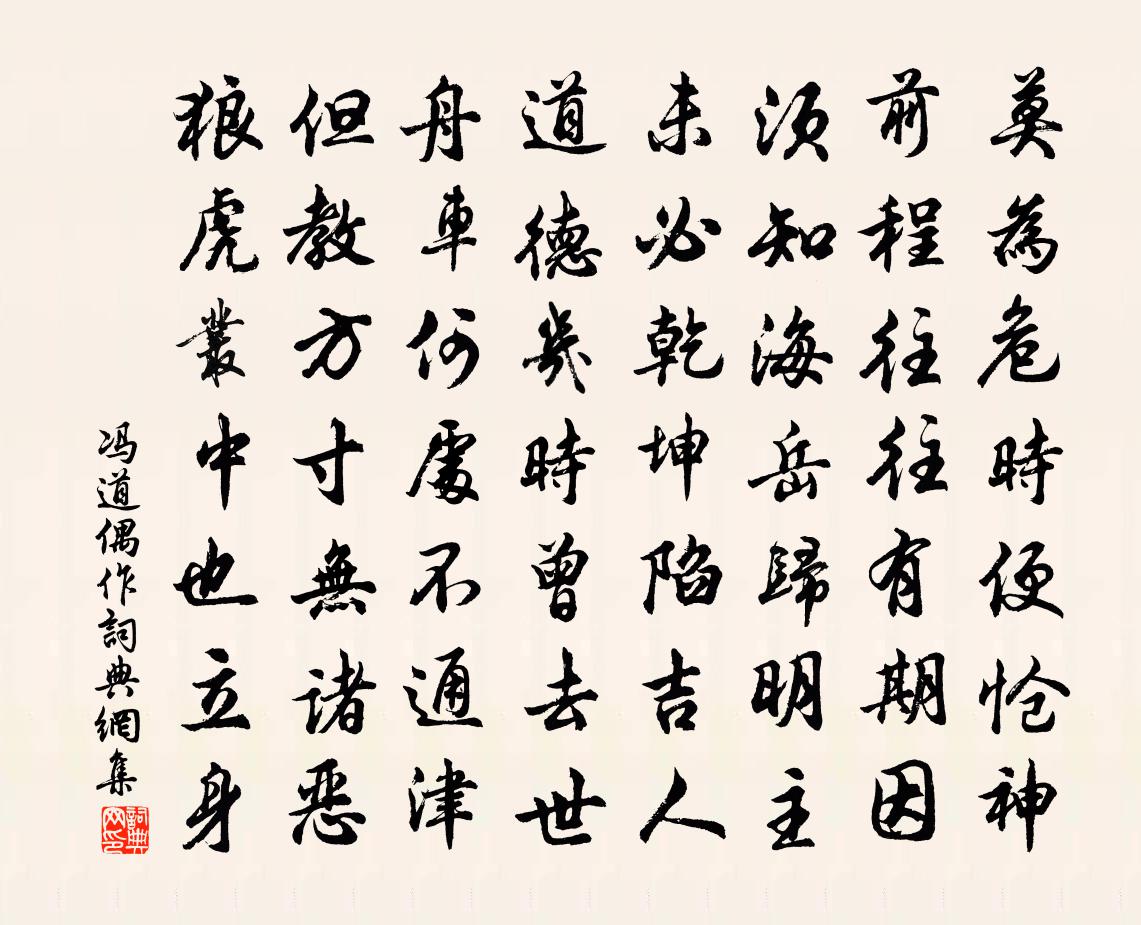 莫為危時便怆神
前程往往有期因
须知海岳歸明主
未必乾坤陷吉人
道德幾時曾去世
舟車何處不通津
但教方寸無諸惡
狼虎叢中也立身
冯道偶作詞典網集
詞典網印